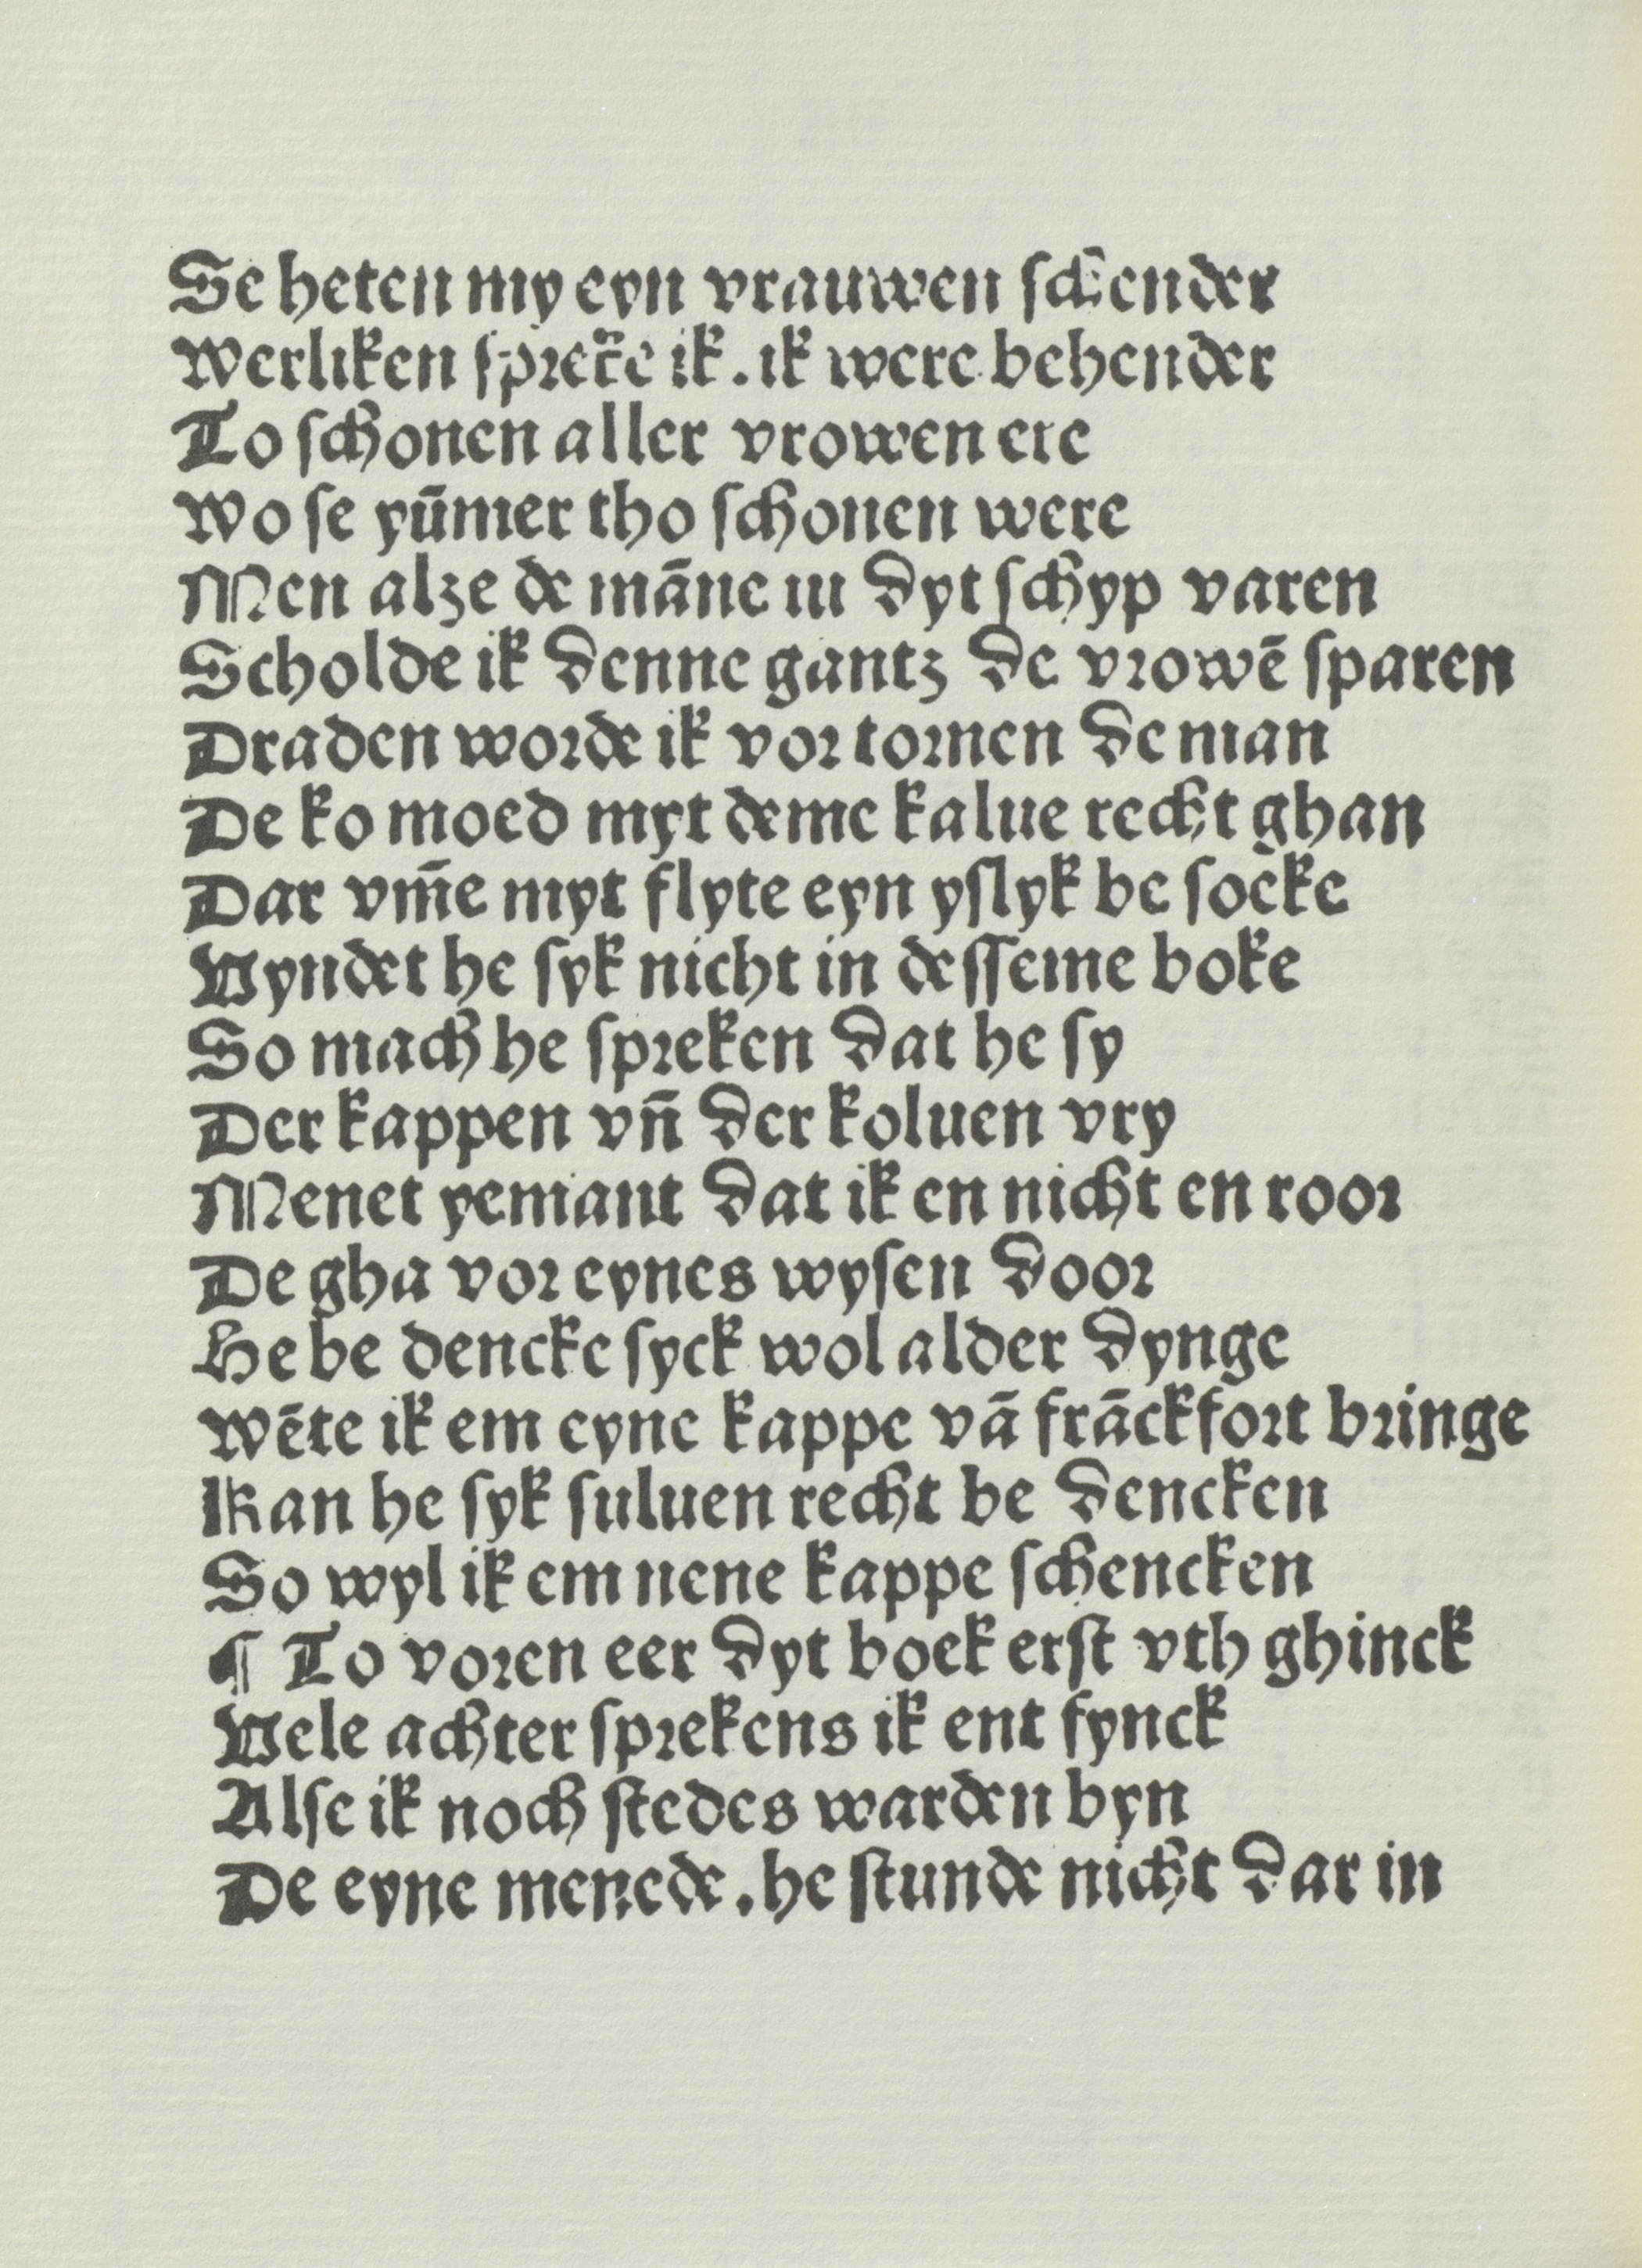 Se heten my eyn vrauwen schender
Werliken spreke ik. ik were behender
To schonen aller vrowen ere
Wo se yūmer tho schonen were
Men alze de māne in dyt schyp varen
Scholde ik denne gantz de vrowē sparen
Draden worde ik vor tornen de man
De ko moed myt deme kalue recht ghan
Dar vm̄e myt flyte eyn yslyk be socke
Vyndet he syk nicht in desseme boke
So mach he spreken dat he sy
Der kappen vn̄ der koluen vry
Menet yemant dat ik en nicht en roor
De gha vor eynes wysen door
He be dencke syck wol alder dynge
Wēte ik em eyne kappe vā frāckfort bringe
Kan he syk suluen recht be dencken
So wyl ik em nene kappe schencken
¶ To voren eer dyt boek erst vth ghinck
Vele achter sprekens ik ent fynck
Alse ik noch stedes warden byn
De eyne menede. he stunde nicht dar in